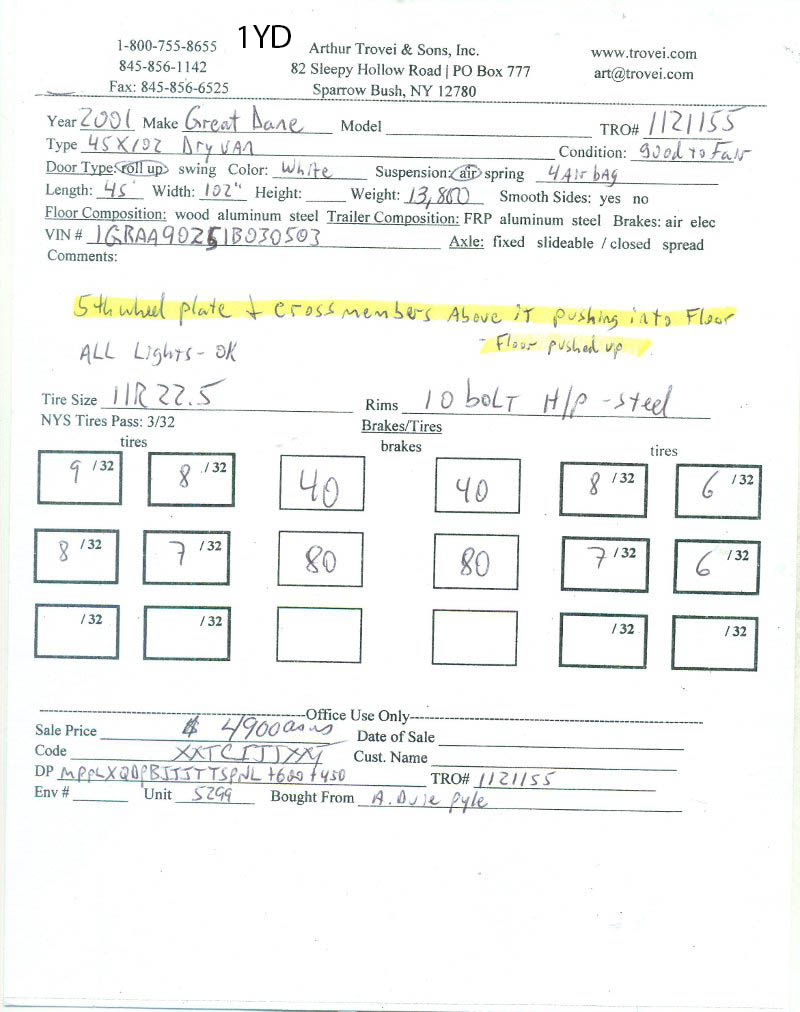 1-800-755-8655 1YD Arthur Trovei & Sons, Inc. www.trovei.com
845-856-1142 82 Sleepy Hollow Road | PO Box 777 art@trovei.com
Fax: 845-856-6525 Sparrow Bush, NY 12780
Year 2001 Make Great Dane Model TRO# 1121155
Type 45X102 Dry VAN Condition: good to Fair
Door Type: roll up swing Color: White Suspension: air spring 4 Air bag
Length: 45' Width: 102" Height: Weight: 13,800 Smooth Sides: yes no
Floor Composition: wood aluminum steel Trailer Composition: FRP aluminum steel Brakes: air elec
VIN # 1GRAA90251B030503 Axle: fixed slideable / closed spread
Comments:
5th wheel plate + crossmembers Above it pushing into Floor
- Floor pushed up
ALL Lights - OK
Tire Size 11R 22.5 Rims 10 bolt H/P - steel
NYS Tires Pass: 3/32 Brakes/Tires
tires brakes tires
9 /32 8 /32 40 40 8 /32 6 /32
8 /32 7 /32 80 80 7 /32 6 /32
/32 /32 /32 /32
Office Use Only
Sale Price $ 4900 as is Date of Sale
Code Cust. Name
DP +600 +450 TRO# 1121155
Env # Unit 5299 Bought From A. Duie Pyle